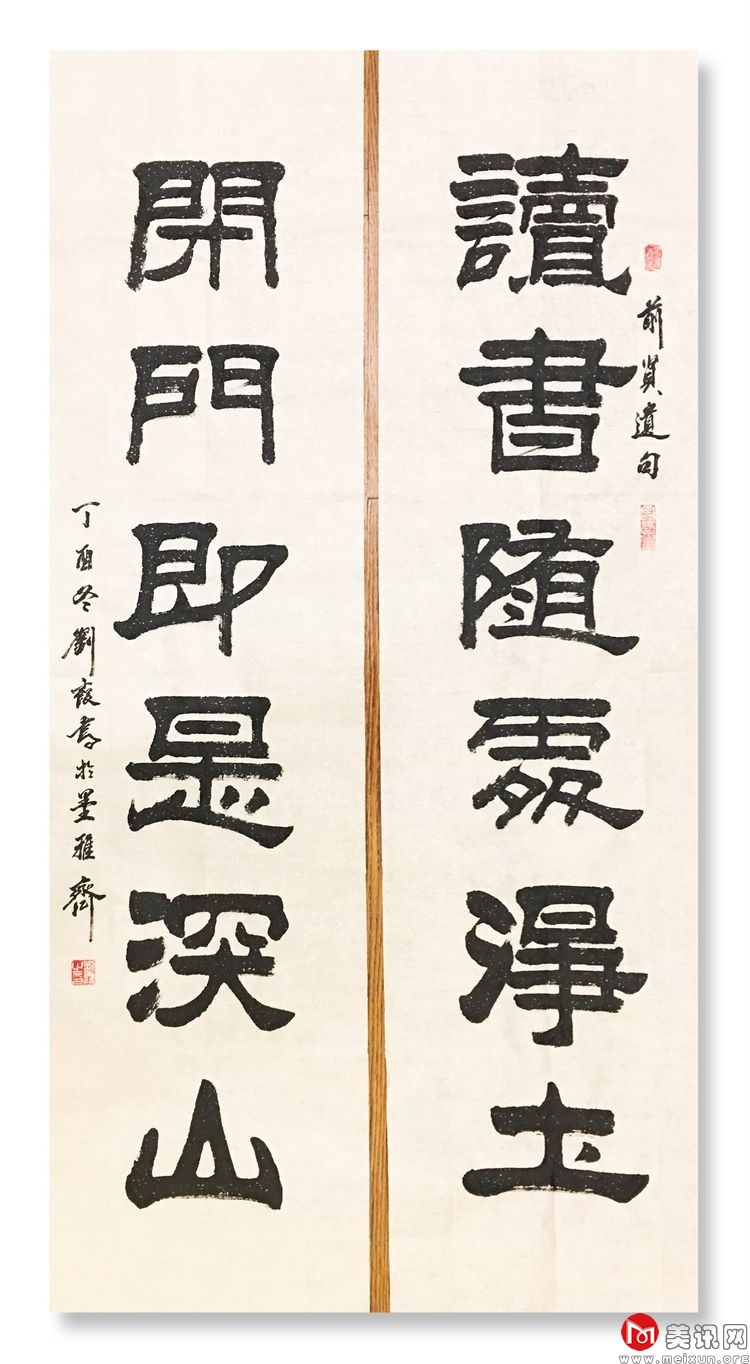 讀書随處淨土
前賢遺句
閉門即是深山
丁酉冬劉霞書於墨雅齋
美讯网
www.meixun.org